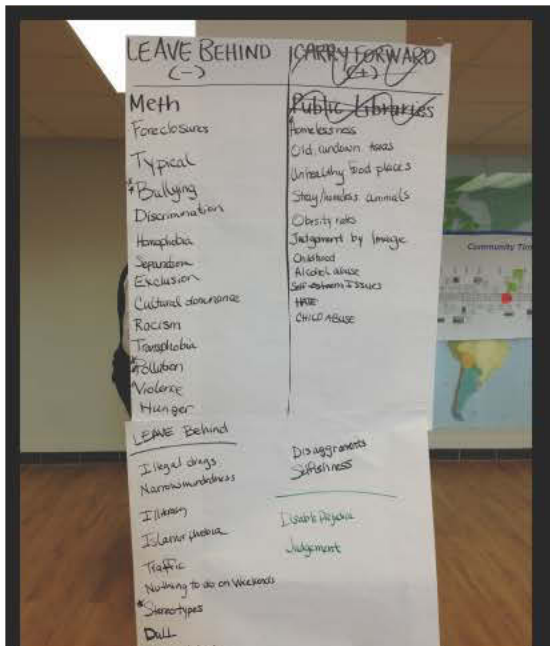 LEAVE BEHIND
(-)
Meth
Foreclosures
Typical
* Bullying
Discrimination
Homophobia
Separation
Exclusion
Cultural dominance
Racism
Transphobia
* Pollution
Violence
Hunger
CARRY FORWARD
(+)
Public Libraries
* Homelessness
Old, rundown areas
Unhealthy food places
Stray/homeless animals
Obesity rates
Judgement by Image
Childhood
Alcohol abuse
Self-esteem Issues
HATE
CHILD ABUSE
LEAVE Behind
Illegal drugs
Narrowmindedness
Illiteracy
Traffic
Nothing to do on Weekends
* Stereotypes
Dull
Disaggrements
Selfishness
Judgement
Community